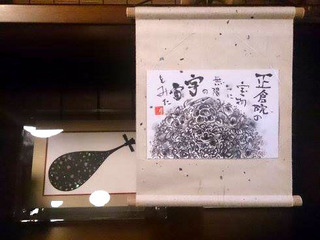 正倉院の
宝物
に
無限
の
宇宙
をみた